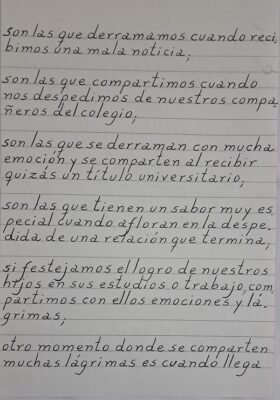 son las que derramamos cuando reci-
bimos una mala noticia;
son las que compartimos cuando
nos despedimos de nuestros compa-
ñeros del colegio;
son las que se derraman con mucha
emoción y se comparten al recibir
quizás un título universitario;
son las que tienen un sabor muy es-
pecial cuando afloran en la despe-
dida de una relación que termina;
si festejamos el logro de nuestros
hijos en sus estudios o trabajo, com-
partimos con ellos emociones y lá-
grimas;
otro momento donde se comparten
muchas lágrimas es cuando llega